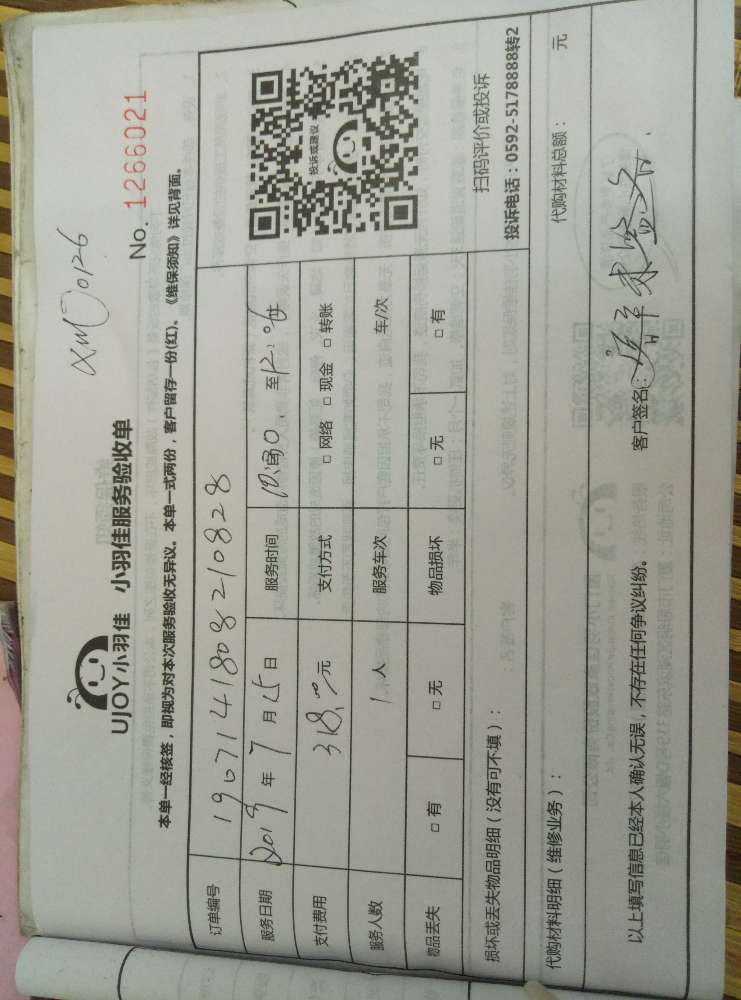 XM00126
UJOY小羽佳 小羽佳服务验收单
No. 1266021
本单一经核签，即视为对本次服务验收无异议。本单一式两份，客户留存一份(红)。《维保须知》详见背面。
订单编号 190714180821 0828
服务日期 2019 年 7 月 15 日 服务时间 至 12:06
支付费用 318.00 元 支付方式 □ 网络 □ 现金 □ 转账
服务人数 1 人 服务车次 车/次
物品丢失 □ 有 □ 无 物品损坏 □ 无 □ 有
投诉或建议
扫码评价或投诉
投诉电话：0592-5178888转2
损坏或丢失物品明细（没有可不填）：
代购材料明细（维修业务）： 代购材料总额： 元
以上填写信息已经本人确认无误，不存在任何争议纠纷。 客户签名：